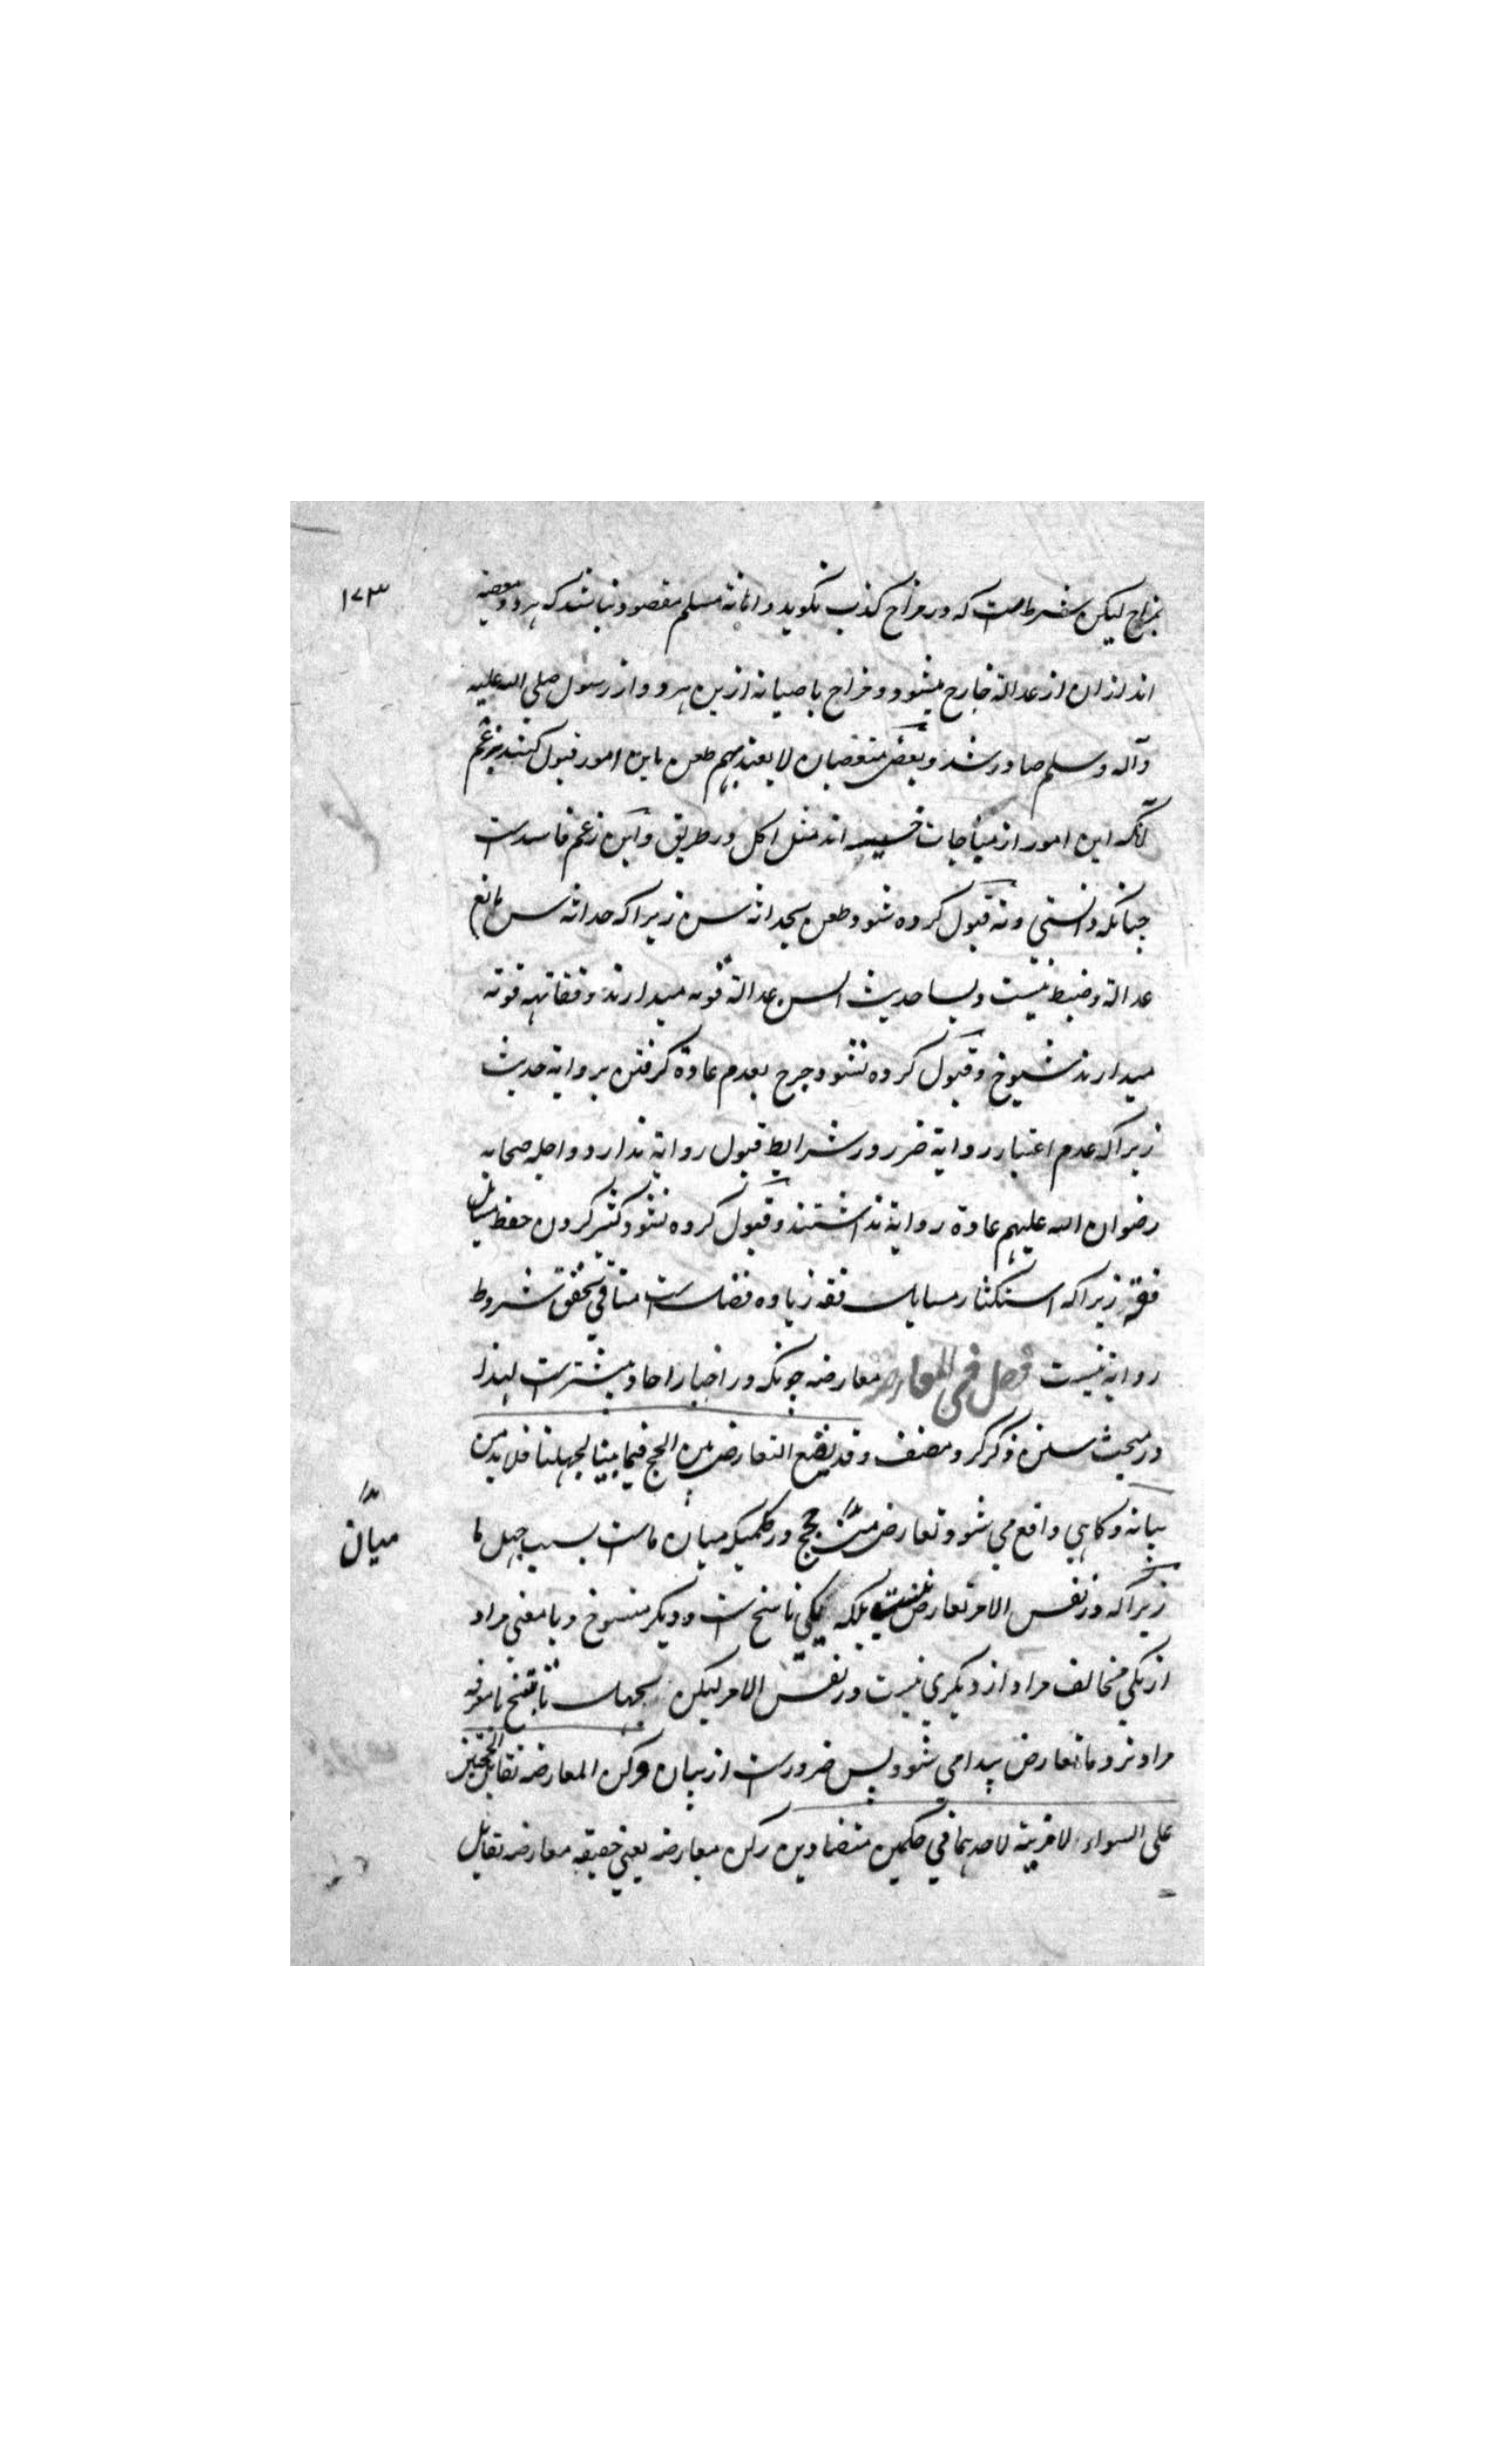 ۱۷۳
بمزاح لیکن شرطست که در مزاح کذب نگوید و اهانة مسلم مقصود نباشد که هر دو معصیة
اند از ان از عدالة خارج میشود و مزاح با صیانة ازین هر دو از رسول صلی الله علیه
وآله وسلم صادر شد و بعض متعصبان لا یعتد بهم طعن باین امور قبول کنند بزعم
آنکه این امور از مباحات خسیسه اند مثل اکل در طریق و این زعم فاسدست
چنانکه دانستی ونه قبول کرده شود طعن بحداثة سن زیراکه حداثة سن مانع
عدالة وضبط نیست و بسا حدیث السن عدالة قویه میدارند و فقاهة قویه
میدارند شیوخ و قبول کرده نشود جرح بعدم عادة کرفتن بروایة حدیث
زیراکه عدم اعتبار روایة ضرر در شرایط قبول روایة ندارد و اجله صحابه
رضوان الله علیهم عادة روایة نداشتند و قبول کرده نشود کثیر کردن حفظ مسایل
فقه زیراکه استکثار مسایل فقه زیاده فضلست منافی تحقق شروط
روایة نیست فصل فی المعارضه معارضه چونکه در اخبار احاد بیشترست لهذا
در مبحث سنن ذکر کرد مصنف وقد یقع التعارض بین الحجج فیما بیننا لجهلنا فلا بد من
بیانه و کاهی واقع می شود تعارض میان حجج در حکمیکه میان ماست بسبب جهل ما
میان
زیراکه در نفس الامر تعارض نیست بلکه یکی ناسخ ست و دیکر منسوخ و یا معنی مراد
از یکی مخالف مراد از دیکری نیست در نفس الامر لیکن بجهل ناسخ یا معرفة
مراد نزد ما تعارض پیدا می شود پس ضرورست از بیان ورکن المعارضه تقابل الحجتین
علی السواء لا مزیة لاحدهما فی حکمین متضادین رکن معارضه یعنی حقیقه معارضه تقابل